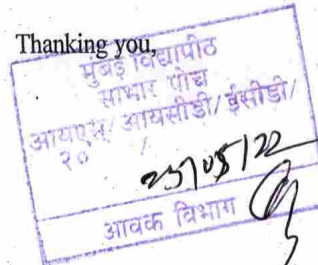 Thanking you,
मुंबई विद्यापीठ
साभार पोच
आयएम/ आयसीडी/ ईसीडी/
२० /.
25/05/22
आवक विभाग